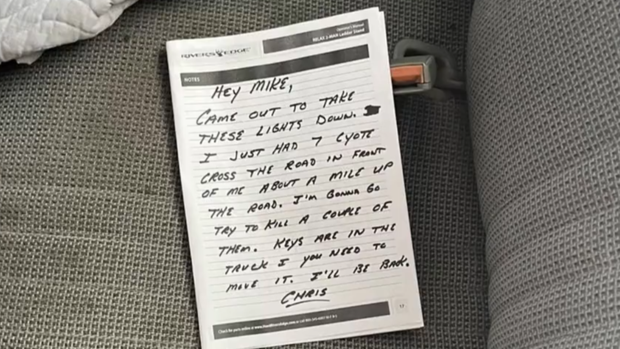 RIVERS EDGE
RELAX 1-MAN Ladder Stand
NOTES
HEY MIKE,
CAME OUT TO TAKE
THESE LIGHTS DOWN.
I JUST HAD 7 CYOTE
CROSS THE ROAD IN FRONT
OF ME ABOUT A MILE UP
THE ROAD. I'M GONNA GO
TRY TO KILL A COUPLE OF
THEM. KEYS ARE IN THE
TRUCK I YOU NEED TO
MOVE IT. I'LL BE BACK.
CHRIS